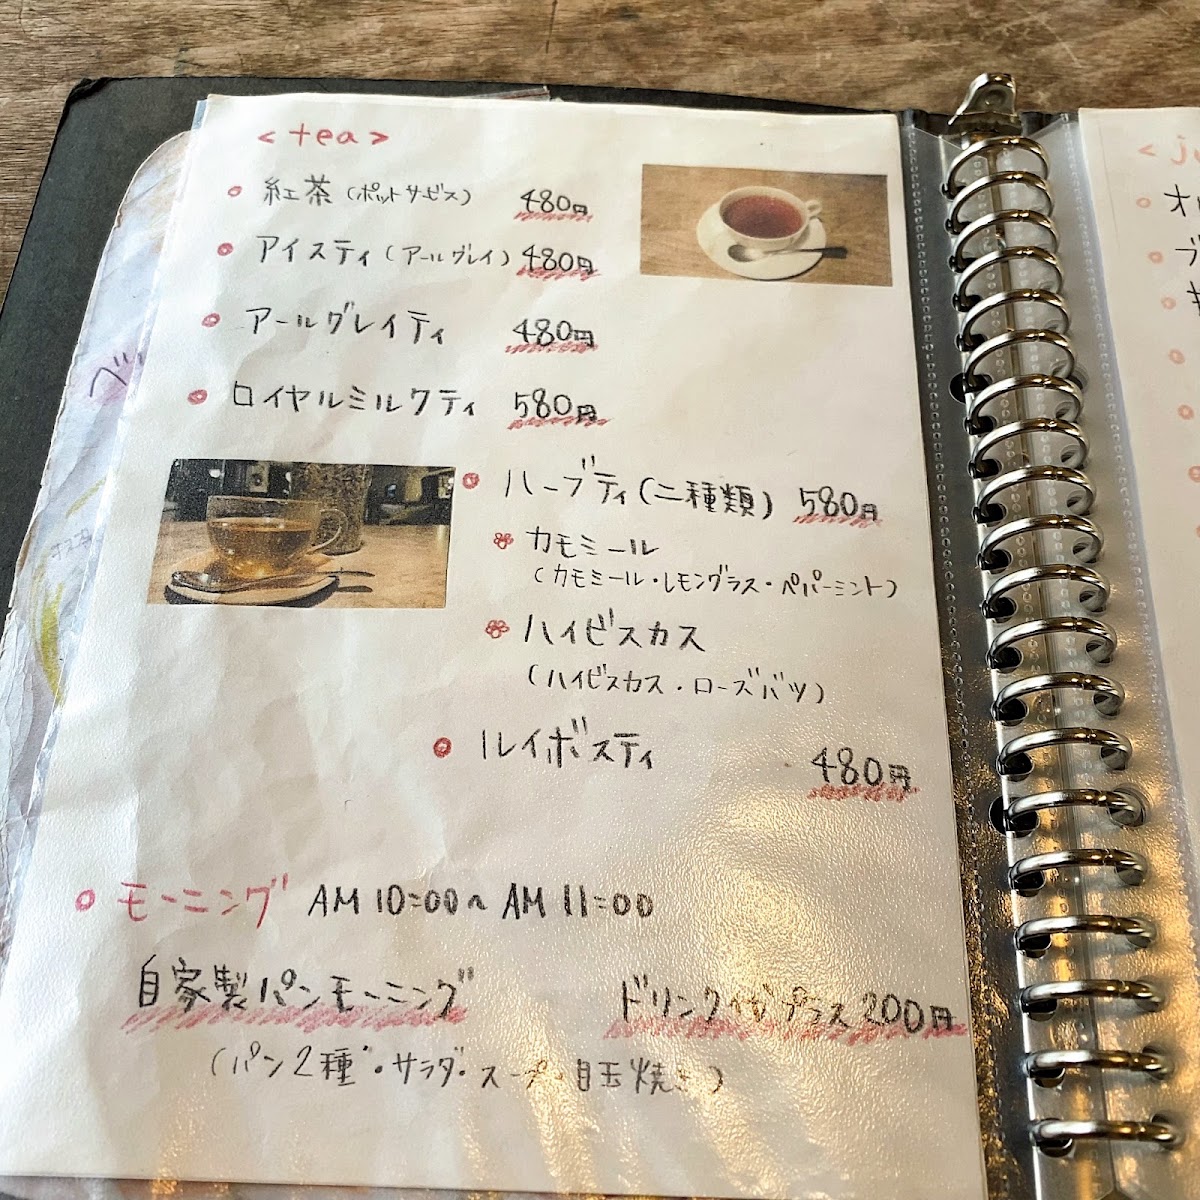 <tea>
紅茶(ポットサービス) 480円
アイスティ(アールグレイ) 480円
アールグレイティ 480円
ロイヤルミルクティ 580円
ハーブティ(二種類) 580円
カモミール
(カモミール・レモングラス・ペパーミント)
ハイビスカス
(ハイビスカス・ローズバツ)
ルイボスティ 480円
モーニング AM 10:00~AM 11:00
自家製パンモーニング ドリンク代プラス200円
(パン2種・サラダ・スープ・目玉焼き)